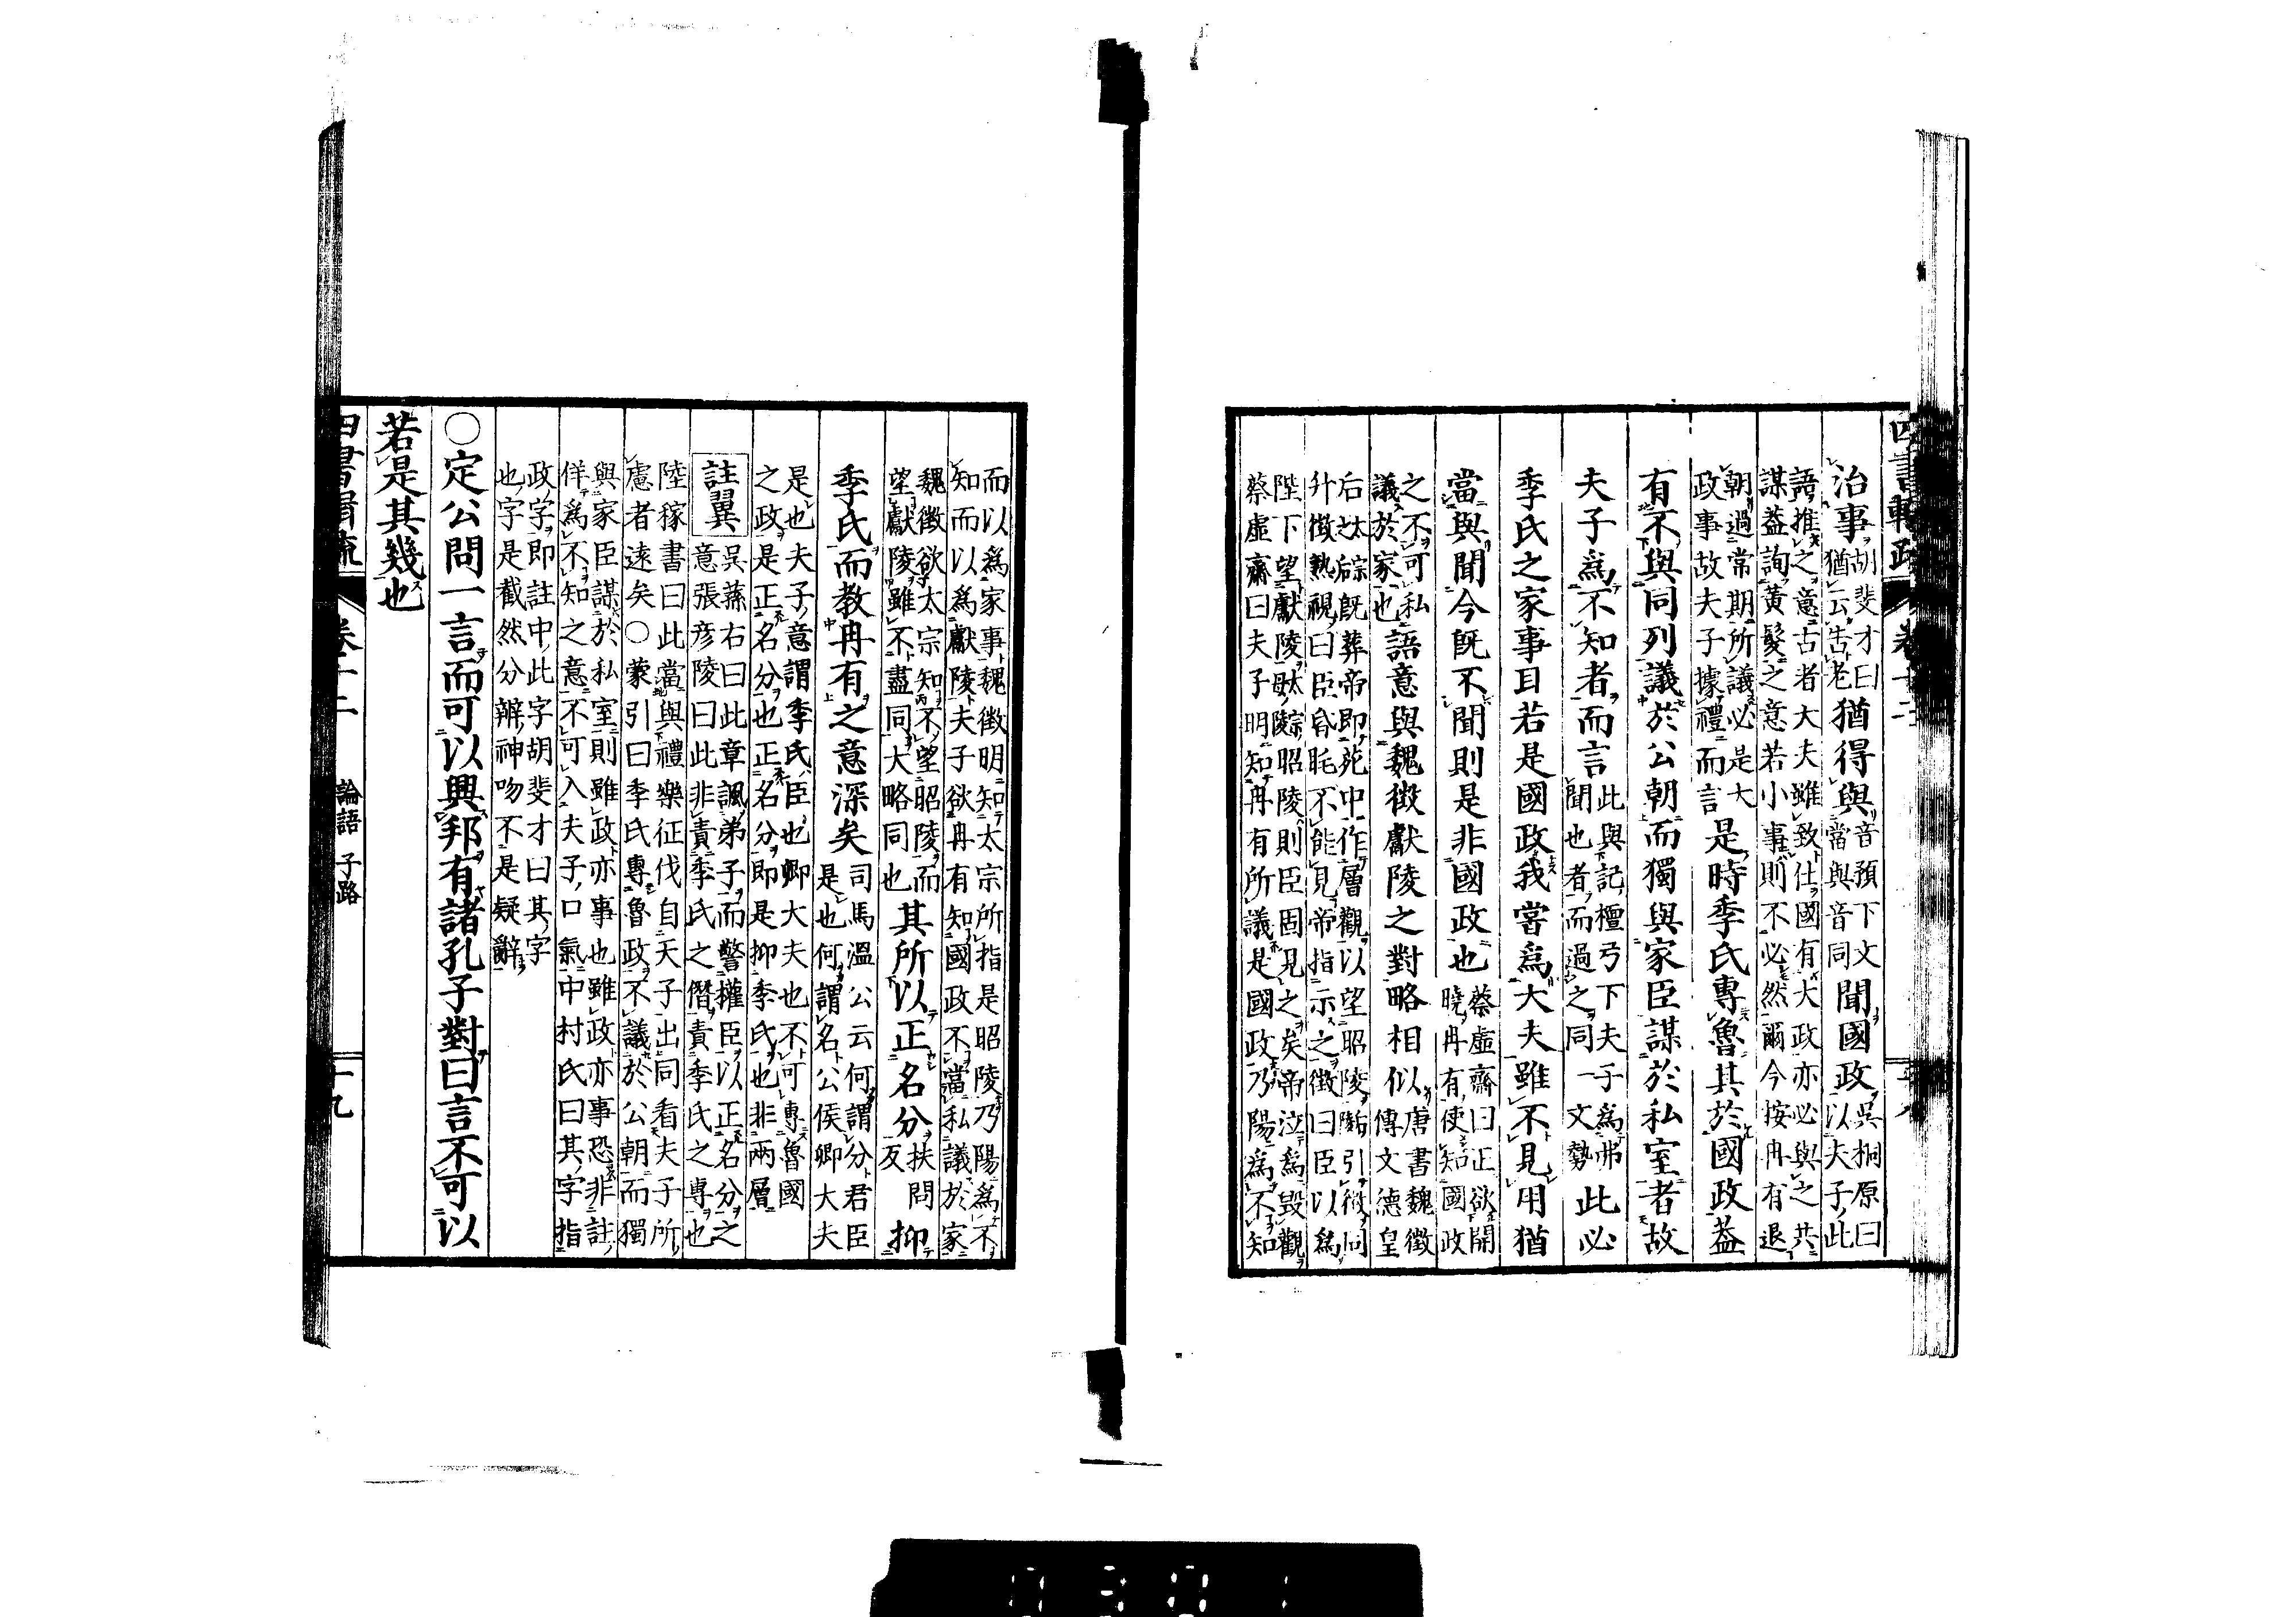 治事胡斐才曰猶云古老猶得與音預下文當與音同聞國政吳桐原曰以夫子此
語推之意古者大夫雖致仕國有大政亦必與之共
謀益詢黃髮之意若小事則不必然爾今按冉有退
朝過常期所議必是大政事故夫子據禮而言是時季氏專魯其於國政蓋
有不與同列議於公朝而獨與家臣謀於私室者故
夫子爲不知者而言此與記檀弓下夫子爲弗聞也者而過之同一文勢此必
季氏之家事耳若是國政我嘗爲大夫雖不見用猶
當與聞今旣不聞則是非國政也蔡虛齋曰正欲開曉冉有使知國政
之不可私議於家也語意與魏徵獻陵之對略相似唐書魏徵傳文德皇
后旣葬帝卽苑中作層觀以望昭陵引徵同
升徵熟視曰臣昏眊不能見帝指示之徵曰臣以爲
陛下望獻陵昭陵則臣固見之矣帝泣爲毀觀
蔡虛齋曰夫子明知冉有所議是國政乃陽爲不知
而以爲家事魏徵明知太宗所指是昭陵乃陽爲不
知而以爲獻陵夫子欲冉有知國政不當私議於家
魏徵欲太宗知不望昭陵而望獻陵雖不盡同大略同也其所以正名分扶問反抑
季氏而教冉有之意深矣司馬溫公云何謂分君臣是也何謂名公侯卿大夫
是也夫子意謂季氏臣也卿大夫也不可專魯國
之政是正名分也正名分卽是抑季氏也非兩層
註翼吳蓀右曰此章諷弟子而警權臣以正名分之
意張彥陵曰此非責季氏之僭責季氏之專也
陸稼書曰此當與禮樂征伐自天子出同看夫子所
慮者遠矣○蒙引曰季氏專魯政不議於公朝而獨
與家臣謀於私室則雖政亦事也雖政亦事恐非註
佯爲不知之意不可入夫子口氣中村氏曰其字指
政字卽註中此字胡斐才曰其字
也字是截然分辨神吻不是疑辭
○定公問一言而可以興邦有諸孔子對曰言不可以
若是其幾也
論語 子路